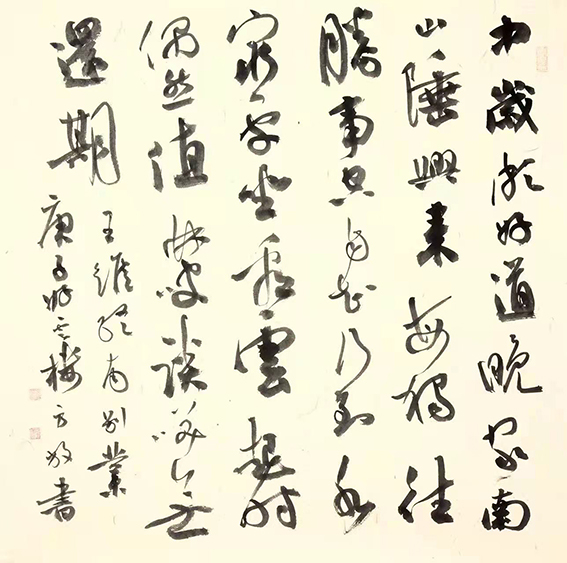 中歲頗好道晚家南
山陲興来每獨往
勝事空自知行到水
窮處坐看雲起時
偶然值林叟談笑无
還期
王維終南別業
庚子 書